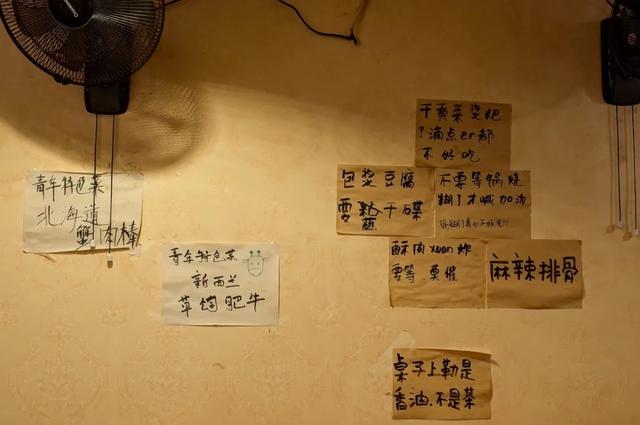 青年特色菜
北海道
蟹肉棒
青年特色菜
新西兰
草饲肥牛
干贡菜烫粑
了滴点er都
不好吃
包浆豆腐
要粘干碟
蘸
不要等锅烧
糊了才喊加汤
酥肉xuan炸
要等 莫催
麻辣排骨
桌子上勒是
香油.不是菜